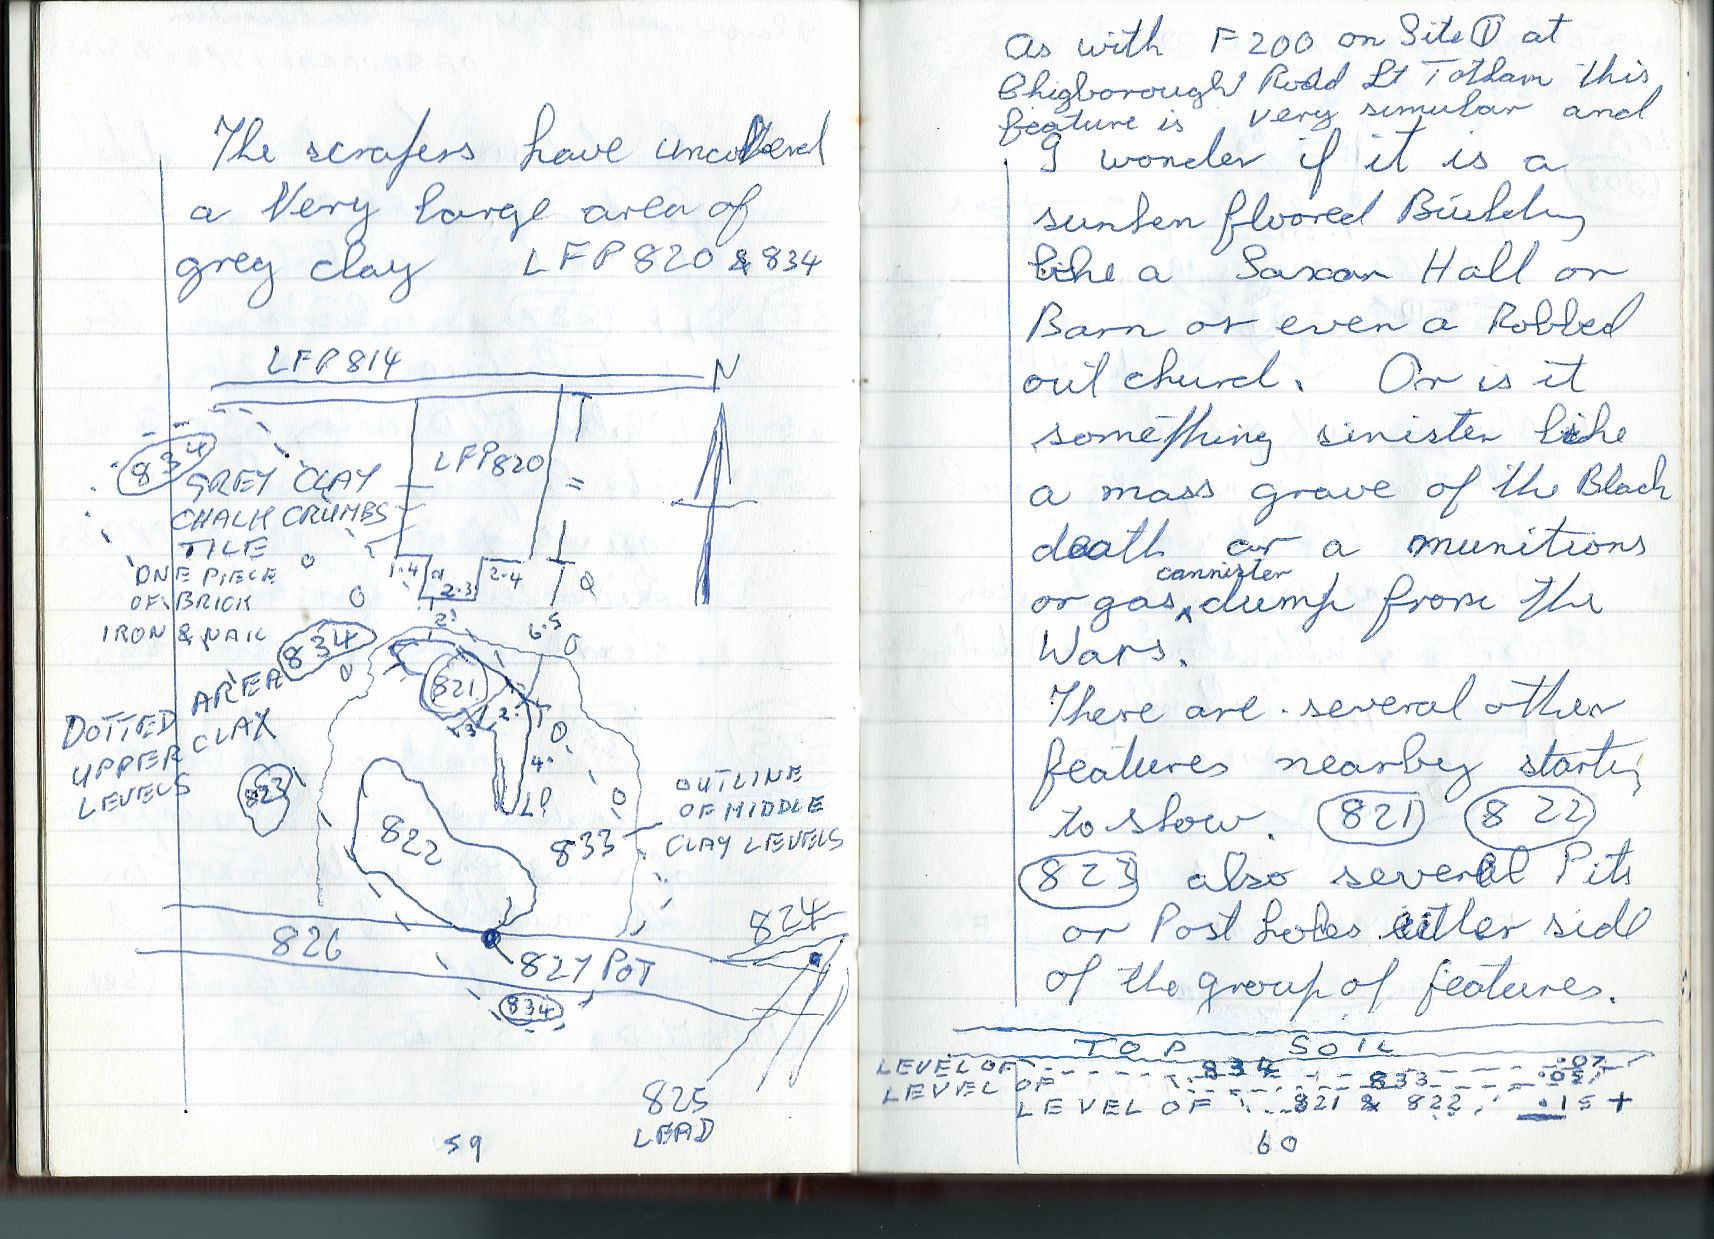 The scrapers have uncovered
a Very large area of
grey clay LFP 820 & 834
LFP 814
N
834
LFP 820
GREY CLAY
CHALK CRUMBS
TILE
ONE PIECE
OF BRICK
IRON & NAIL
1.4
2.3
2.4
6.5
834
AREA
DOTTED
UPPER CLAY
LEVELS
821
823
822
833
OUTLINE
OF MIDDLE
CLAY LEVELS
826
827 POT
824
834
825
LEAD
59
As with F 200 on Site ① at
Chigborough Road Lt Totham this
feature is very simular and
I wonder if it is a
sunken floored Building
like a Saxon Hall or
Barn or even a Robbed
out church. Or is it
something sinister like
a mass grave of the Black
death or a munitions
or gas cannister dump from the
Wars.
There are several other
features nearby starting
to show. 821 822
823 also several Pits
or Post holes either side
of the group of features.
TOP SOIL
LEVEL OF 834 .07
LEVEL OF 833 .05
LEVEL OF 821 & 822 .15 +
60